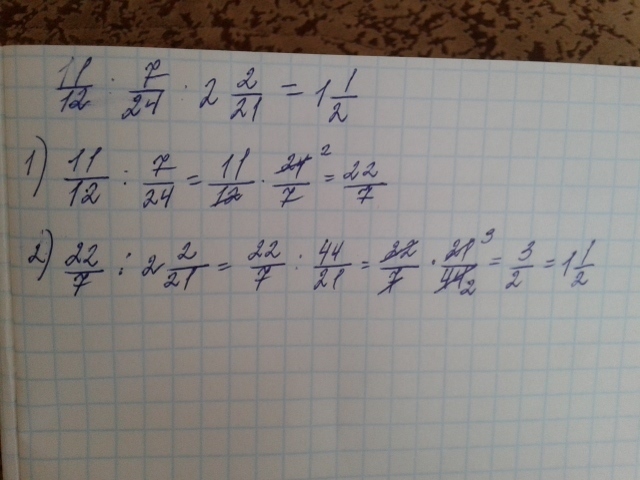 11/12 : 7/24 : 2 2/21 = 1 1/2
1) 11/12 : 7/24 = 11/12 · 24/7 2 = 22/7
2) 22/7 : 2 2/21 = 22/7 : 44/21 = 22/7 · 21 3/44 2 = 3/2 = 1 1/2